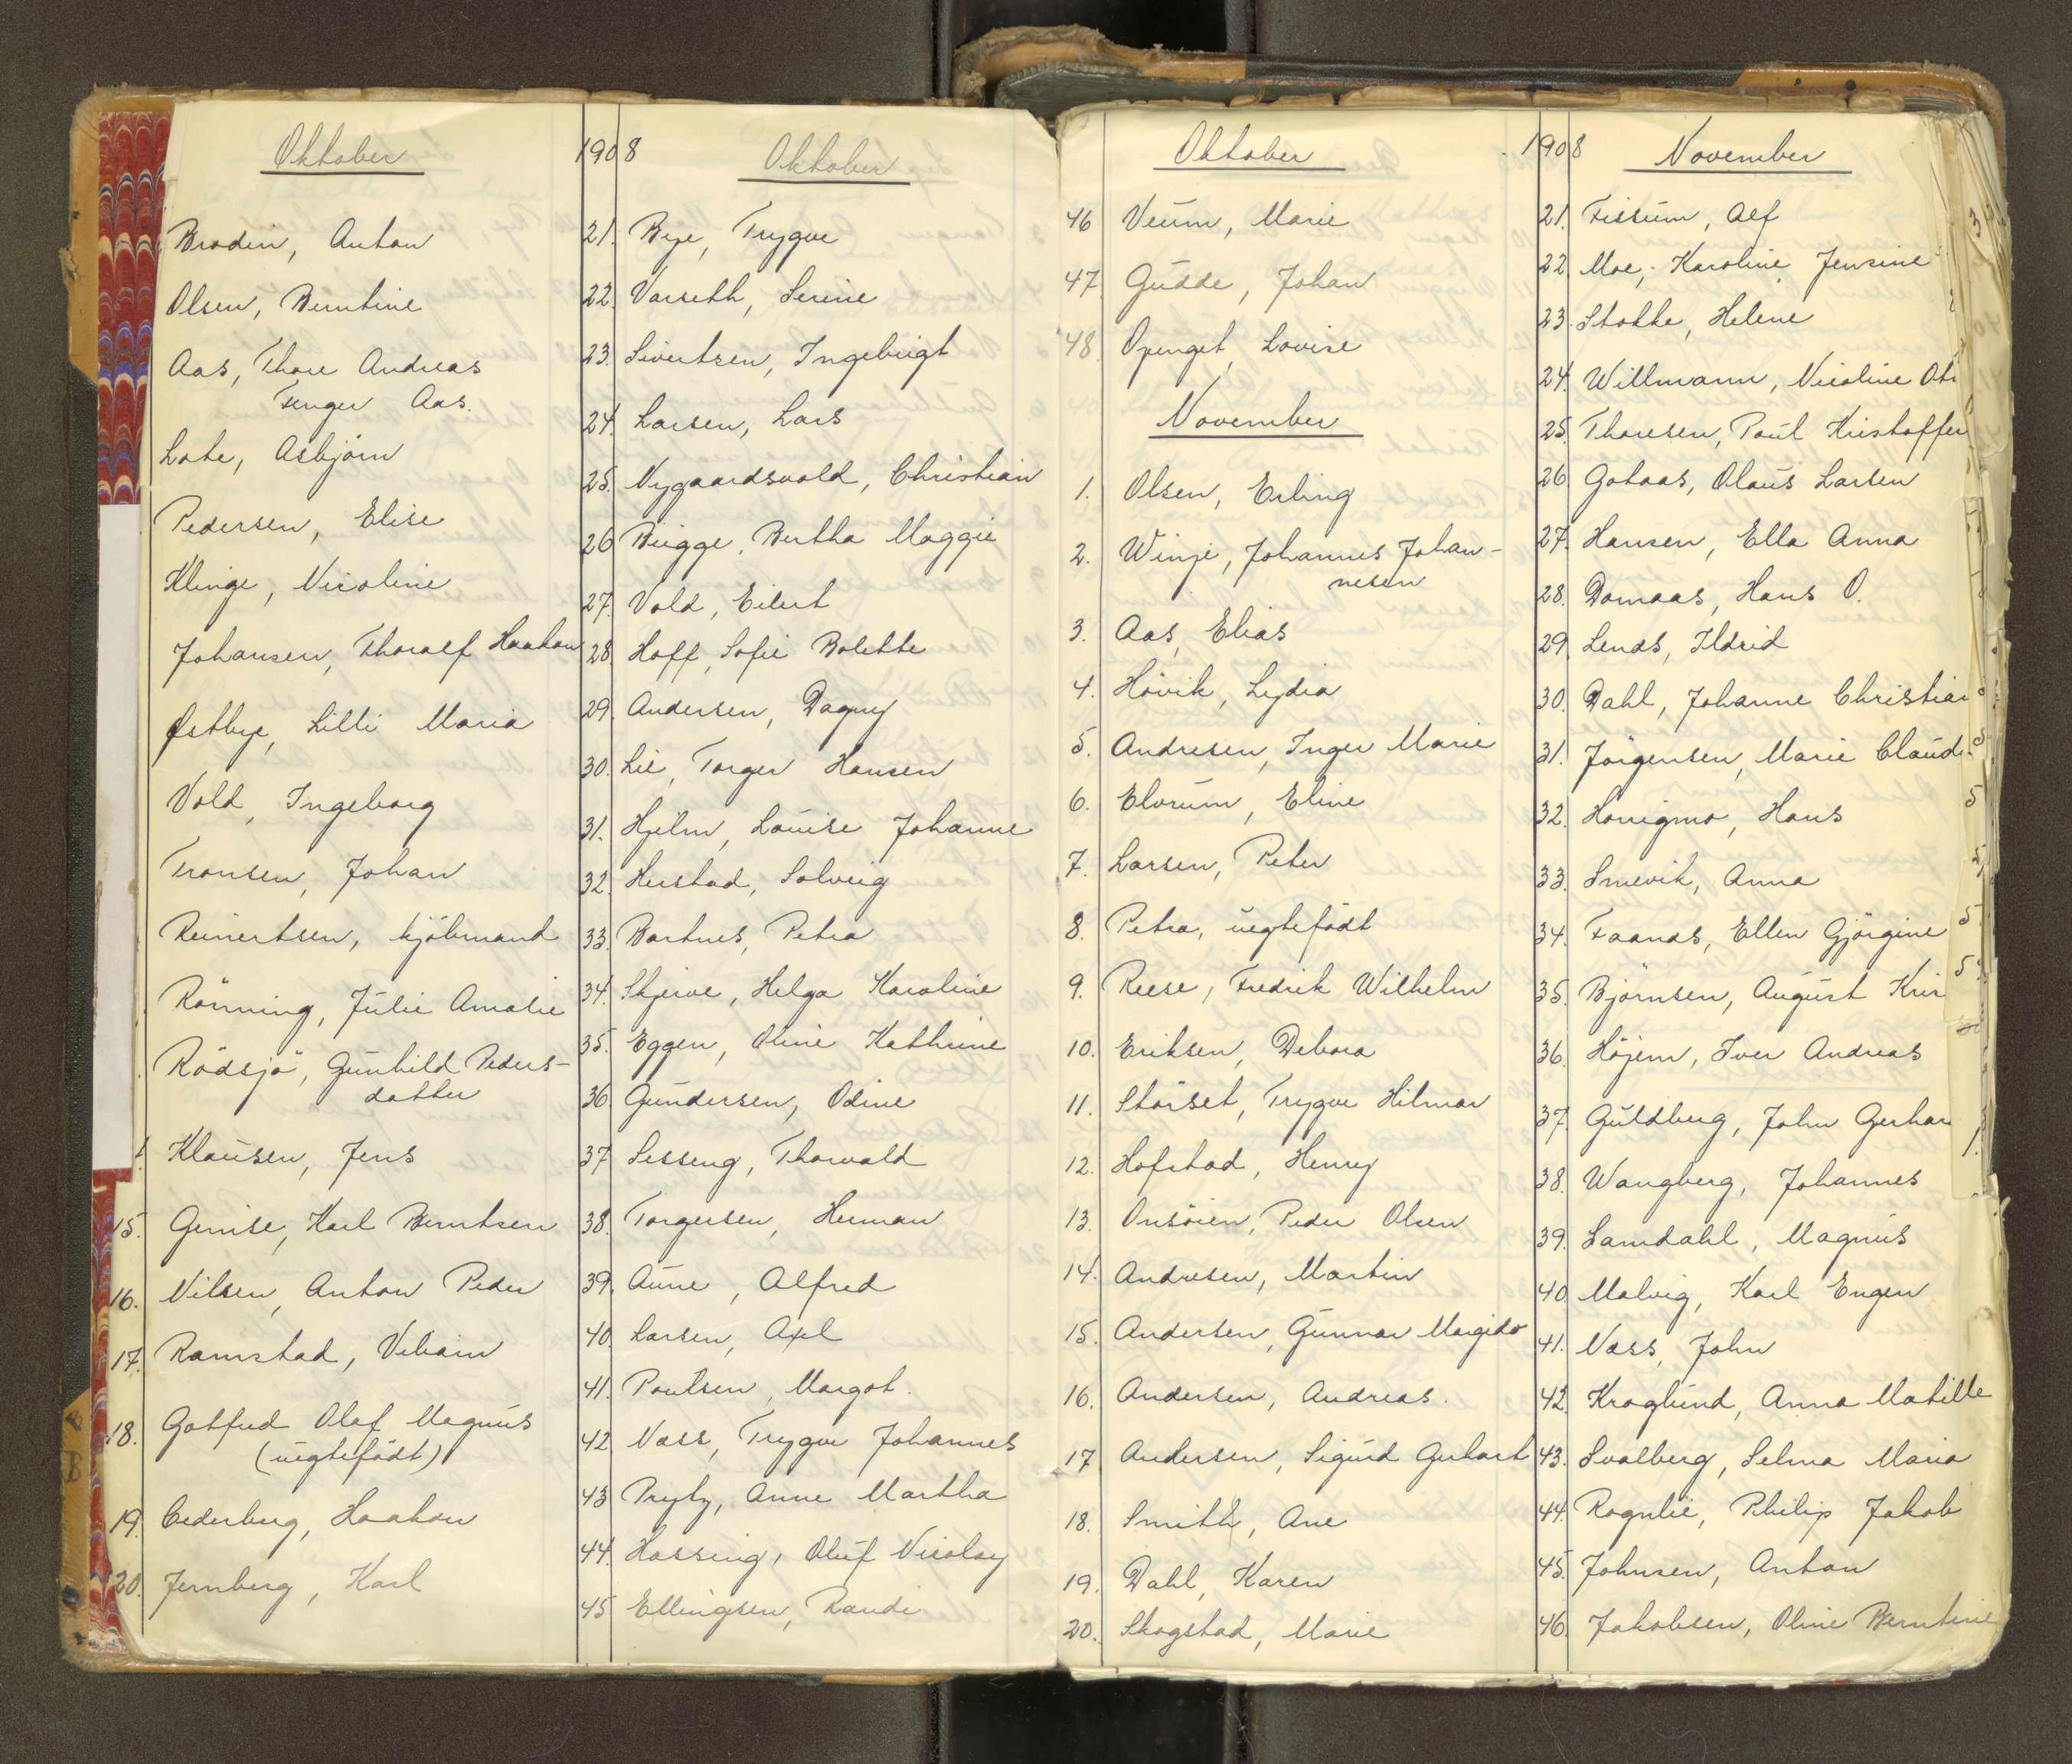 Oktober
Brodin, Anton
Olsen, Berntine
Aas, Thore Andreas
Fenger Aas.
Lote, Asbjörn
Pedersen, Elise
Klinge, Nicoline
Johansen, Thoralf Haakon
Østbye, Lilli Maria
Vold, Ingeborg
Tronsen, Johan
Reinertsen, kjöbmand
Rönning, Julie Amalie
Rödsjö, Gunhild Peders-
datter
Klausen, Jens
15. Genise, Karl Berntsen
16. Nilsen, Anton Peder
17. Ramstad, Veliam
18. Gotfred Olaf Magnus
(uegtefödt)
19. Cederberg, Haakon
20. Jernberg, Karl
1908
Oktober
21. Bye, Trygve
22. Varseth, Serine
23. Sivertsen, Ingebrigt
24. Larsen, Lars
25. Nygaardsvold, Christian
26 Brigge, Bertha Maggie
27. Vold, Eilert
28. Hoff, Sofie Bolette
29. Andersen, Dagny
30. Lie, Torger Hansen
31. Hjelm, Louise Johanne
32. Herstad, Solveig
33. Bartnes, Petra
34. Skjerve, Helga Karoline
35. Eggen, Oline Kathrine
36. Gundersen, Odine
37 Sesseng, Thorvald
38. Torgersen, Herman
39. Aune, Alfred
40. Larsen, Axel
41. Poulsen, Margot.
42. Næss, Trygve Johannes
43 Pryty, Anne Martha
44. Hassing, Oluf Nicolay
45 Ellingsen, Randi
Oktober
46 Veum, Marie
47. Gudde, Johan
48. Openget, Lovise
November
1. Olsen, Erling
2. Winje, Johannes Johan-
nesen
3. Aas, Elias
4. Hövik, Lydia
5. Andresen, Inger Marie
6. Elvrum, Eline
7. Larsen, Peter
8. Petra, uegtefödt
9. Reese, Fredrik Wilhelm
10. Eriksen, Debora
11. Störset, Trygve Hilmar
12. Hofstad, Henry
13. Onsöien, Peder Olsen
14. Andresen, Martin
15. Andersen, Gunnar Margido
16. Andersen, Andreas.
17 Andersen, Sigurd Gerhart
18. Smith, Ane
19. Dahl, Karen
20. Skogstad, Marie
1908
November
21. Fissum, Alf
22. Moe, Karoline Jensine
23. Stokke, Helene
24. Willmann, Nicoline Ot
25. Thoresen, Poul Kristoffer
26 Gotaas, Olaus Larsen
27. Hansen, Ella Anna
28. Domaas, Hans O.
29. Lends, Ildrid
30. Dahl, Johanne Christian
31. Jörgensen, Marie Claud
32. Honigmo, Hans
33. Smevik, Anna
34. Faanes, Ellen Gjörgine
35. Björnsen, August Kris
36. Höjem, Iver Andreas
37. Guldberg, John Gerhar
38. Wangberg, Johannes
39. Samdahl, Magnus
40. Malvig, Karl Engen
41. Næss, John
42. Kroglund, Anna Matilde
43. Svalberg, Selma Maria
44. Rognlie, Philip Jakob
45. Johnsen, Anton
46. Jakobsen, Oline Berntine